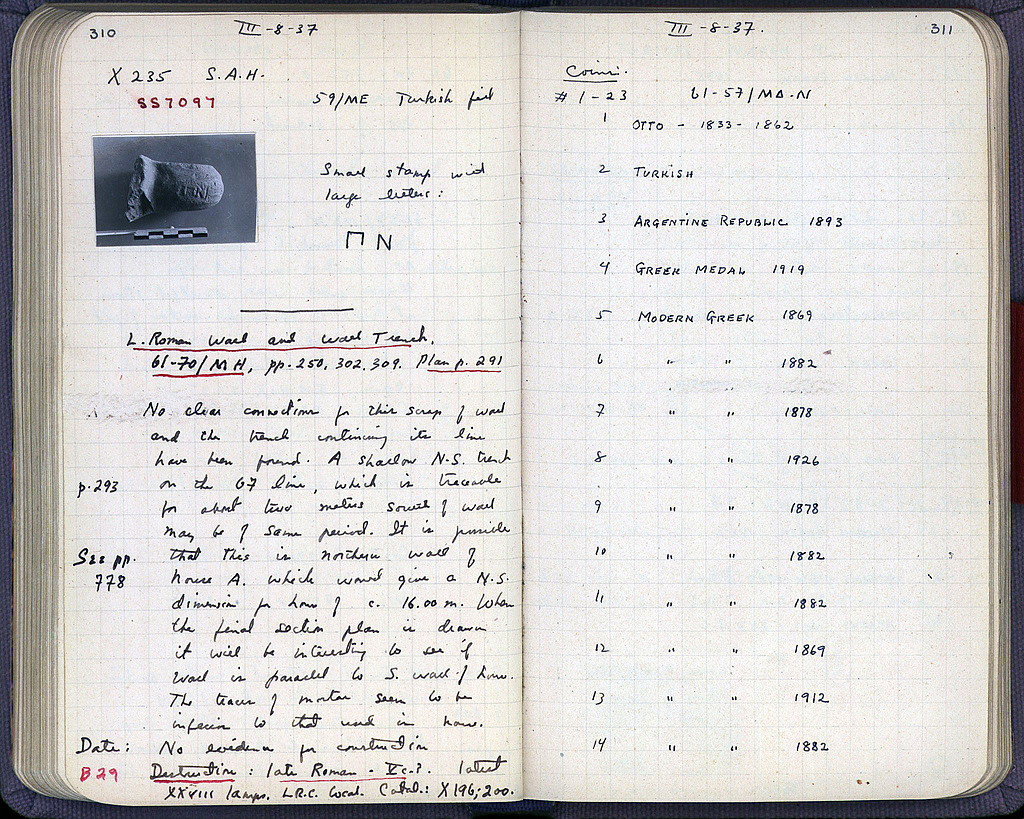 310
III-8-37
X 235 S.A.H.
SS7097
59/ME Turkish pit
Small stamp with
large letters:
ΠN
L. Roman wall and wall Trench.
61-70/MH, pp. 250, 302, 309. Plan p. 291
No clear connections for this scrap of wall
and the trench continuing its line
have been found. A shallow N-S. trench
p. 293
on the 67 line, which is traceable
for about two meters south of wall
may be of same period. It is possible
See pp.
that this is northern wall of
778
house A. which would give a N.S.
dimension for house of c. 16.00 m. When
the final section plan is drawn
it will be interesting to see if
wall is parallel to S. wall of house.
The traces of mortar seem to be
inferior to that used in house.
Date:
No evidence for construction
B 29
Destruction: late Roman - V c.?. latest
XXVIII lamps. L.R.C. local. Catal.: X196; 200.
III-8-37.
311
Coins.
# 1-23 61-57/MΔ-N
1 OTTO - 1833-1862
2 TURKISH
3 ARGENTINE REPUBLIC 1893
4 GREEK MEDAL 1919
5 MODERN GREEK 1869
6 " " 1882
" "
7 " " 1878
8 " " 1926
9 " " 1878
10 " " 1882
11 " " 1882
12 " " 1869
13 " " 1912
14 " " 1882